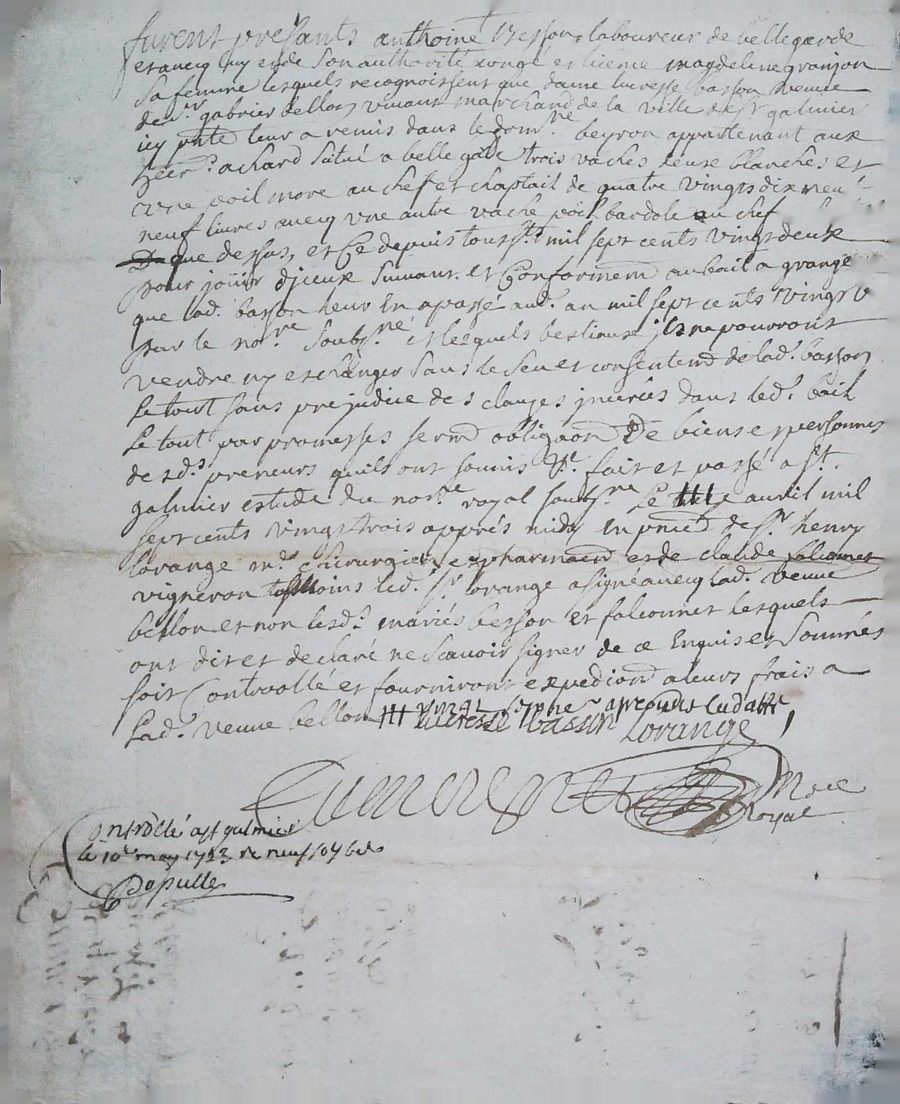 furent presants anthoine besson laboureur de bellegarde
et aucq luy et de son authorité congé et licence magdeleine granjon
sa femme lesquels recognoissent que dame lucresse basson veuve
de Sr gabriel bellon vivant marchand de la ville de st galmier
icy pnte leur a remis dans le dom.ne beyron appartenant aux
heers achard situé a bellegarde trois vaches deux blanches et
vne poil more au chef et chaptail de quatre vingts dix neuf
neuf livres aucq vne autre vache poil bardole au chef
que dessus, et Ce depuis touss.ts mil sept cents vingt deux
pour joüir d'jceux suivant et Conformem. au bail a grange
que lad. basson leur En a passé aud. an mil sept cents vingt
par le no.re soubs.né et lesquels bestiaux ils ne pourront
vendre ny eschanger sans le sceu et consentemt de lad. basson
le tout sans prejudice des clauzes jncerées dans led. bail
le tout par promesses sermt obligaon De biens et personnes
desd.s preneurs quils ont soumis &.e fait et passé a st
galmier estude du no.re royal soubs.né Le avril mil
sept cents vingt trois apprés midy en pnce de Sr henry
lorange m.e chirurgien et pharmacien et de claude falconnet
vigneron tesmoins led. Sr lorange a signé aucq lad. veuve
bellon et non lesd. mariés besson et falconnet lesquels
ont dit et declaré ne scavoir signer de ce Enquis et Sommés
soit Controollé et fourniront expediond a leurs frais a
lad. veuve bellon
lucresse basson Lorange
Nore
Royal
Controllé a st galmier
le 10e may 1723 re neuf sols